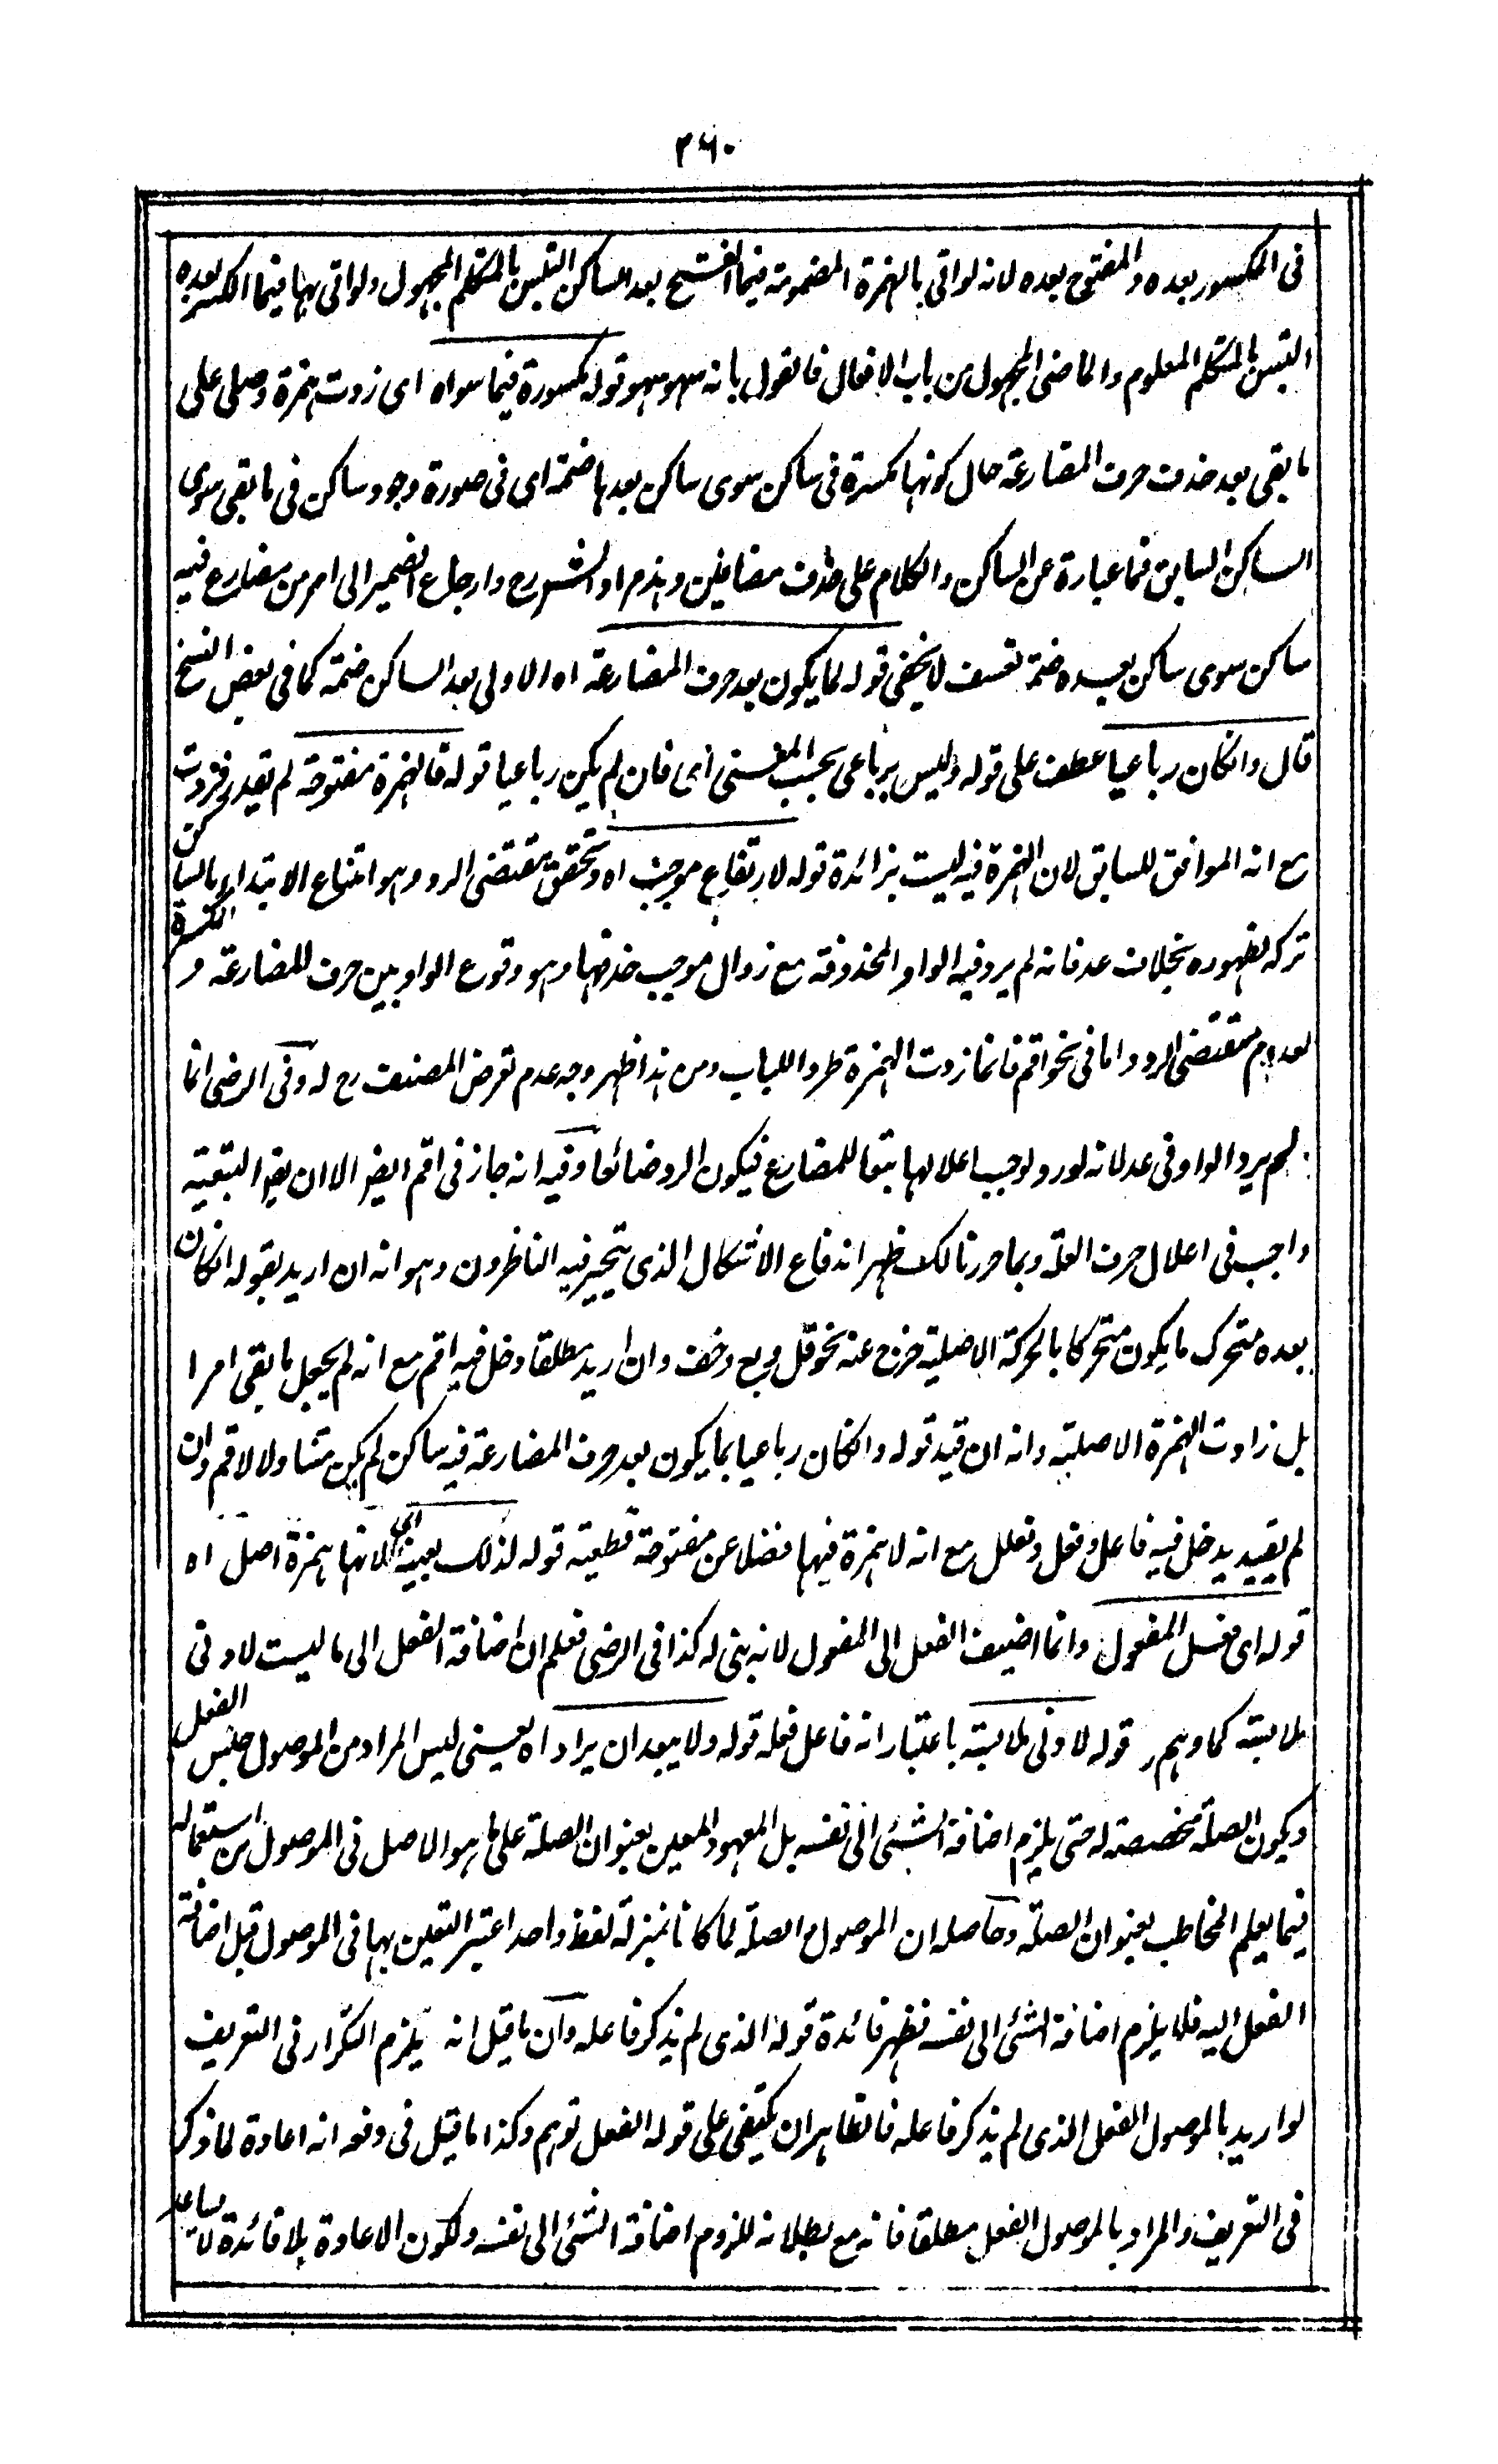 ٣٦٠
فى المكسور بعده والمفتوح بعده لانه لو اتى بالهمزة المضمومة فيما انفتح بعد الساكن التبس بالمتكلم المجهول ولو اتى بها فيما انكسر بعده
التبس بالمتكلم المعلوم والماضى المجهول من باب الافعال فالقول بانه سهو سهو قوله مكسورة فيما سواه اى زدت همزة وصلى على
ما بقى بعد حذف حرف المضارعة حال كونها مكسورة فى ساكن سوى ساكن بعدها ضمة اى فى صورة وجود ساكن فى ما بقى سوى
الساكن السابق فما عبارة عن الساكن والكلام على حذف مضافين وهذم اولشورح وارجاع الضمير الى امر من مضارع فيه
ساكن سوى ساكن بعده ضمة تعسف لا يخفى قوله لما يكون بعد حرف المضارعة اه الاولى بعد الساكن ضمة كما فى بعض النسخ
قال وان كان رباعيا عطف على قوله وليس برباعى بحسب المعنى اى فان لم يكن رباعيا قوله فالهمزة مفتوحة لم يقدر فزدت
مع انه الموافق للسابق لان الهمزة فيه ليست بزائدة قوله لارتفاع موجبه اه وتحقق مقتضى الرد وهو امتناع الابتداء بالساكن
تركه لظهوره بخلاف عد فانه لم يرد فيه الواو المحذوفة مع زوال موجب حذفها وهو وقوع الواو بين حرف المضارعة والكسرة
لعدم مقتضى الرد واما فى نحو اقم فانما زدت الهمزة طردا للباب ومن هذا ظهر وجه عدم تعرض المصنف رح له وفى الرضى انما
لم يرد الواو فى عد لانه لو رد لوجب اعلالها تبعا للمضارع فيكون الرد ضائعا وفيه انه جاز فى اقم ايضا الا ان يقر التبعية
واجب فى اعلال حرف العلة وبما حررنا لك ظهر اندفاع الاشكال الذى يتحير فيه الناظرون وهو انه ان اريد بقوله ان كان
بعده متحرك ما يكون متحركا بالحركة الاصلية خرج عنه نحو قل وبع وخف وان اريد مطلقا دخل فيه اقم مع انه لم يجعل ما بقى امرا
بل زادت الهمزة الاصلية وانه ان قيد قوله وان كان رباعيا بما يكون بعد حرف المضارعة فيه ساكن لم يكن متناولا لاقم وان
لم يقيد يدخل فيه فاعل وفعل وفعلل مع انه لا همزة فيها فضلا عن مفتوحة قطعية قوله لذلك بعينه اى لانها همزة اصل اه
قوله اى فعل المفعول وانما اضيف الفعل الى المفعول لانه بنى له كذا فى الرضى فعلم ان اضافة الفعل الى ما ليست لادنى
ملابسة كما وهم قوله لادنى ملابسة باعتبار انه فاعل فعله قوله ولا يبعد ان يراد اه يعنى ليس المراد من الموصول جنس الفعل
ويكون الصلة مخصصة له حتى يلزم اضافة الشئ الى نفسه بل المعهود المعين بعنوان الصلة على ما هو الاصل فى الموصول من استعماله
فيما يعلم المخاطب بعنوان الصلة وحاصله ان الموصول والصلة لما كانا بمنزلة لفظ واحد اعتبر التعين بها فى الموصول قبل اضافة
الفعل اليه فلا يلزم اضافة الشئ الى نفسه فظهر فائدة قوله الذى لم يذكر فاعله وان ما قيل انه يلزم التكرار فى التعريف
لو اريد بالموصول الفعل الذى لم يذكر فاعله فالظاهر ان يكتفى على قوله الفعل توهم وكذا ما قيل فى دفعه انه اعادة لما ذكر
فى التعريف والمراد بالموصول الفعل مطلقا فانه مع بطلانه للزوم اضافة الشئ الى نفسه ولكون الاعادة بلا فائدة لا يساعد